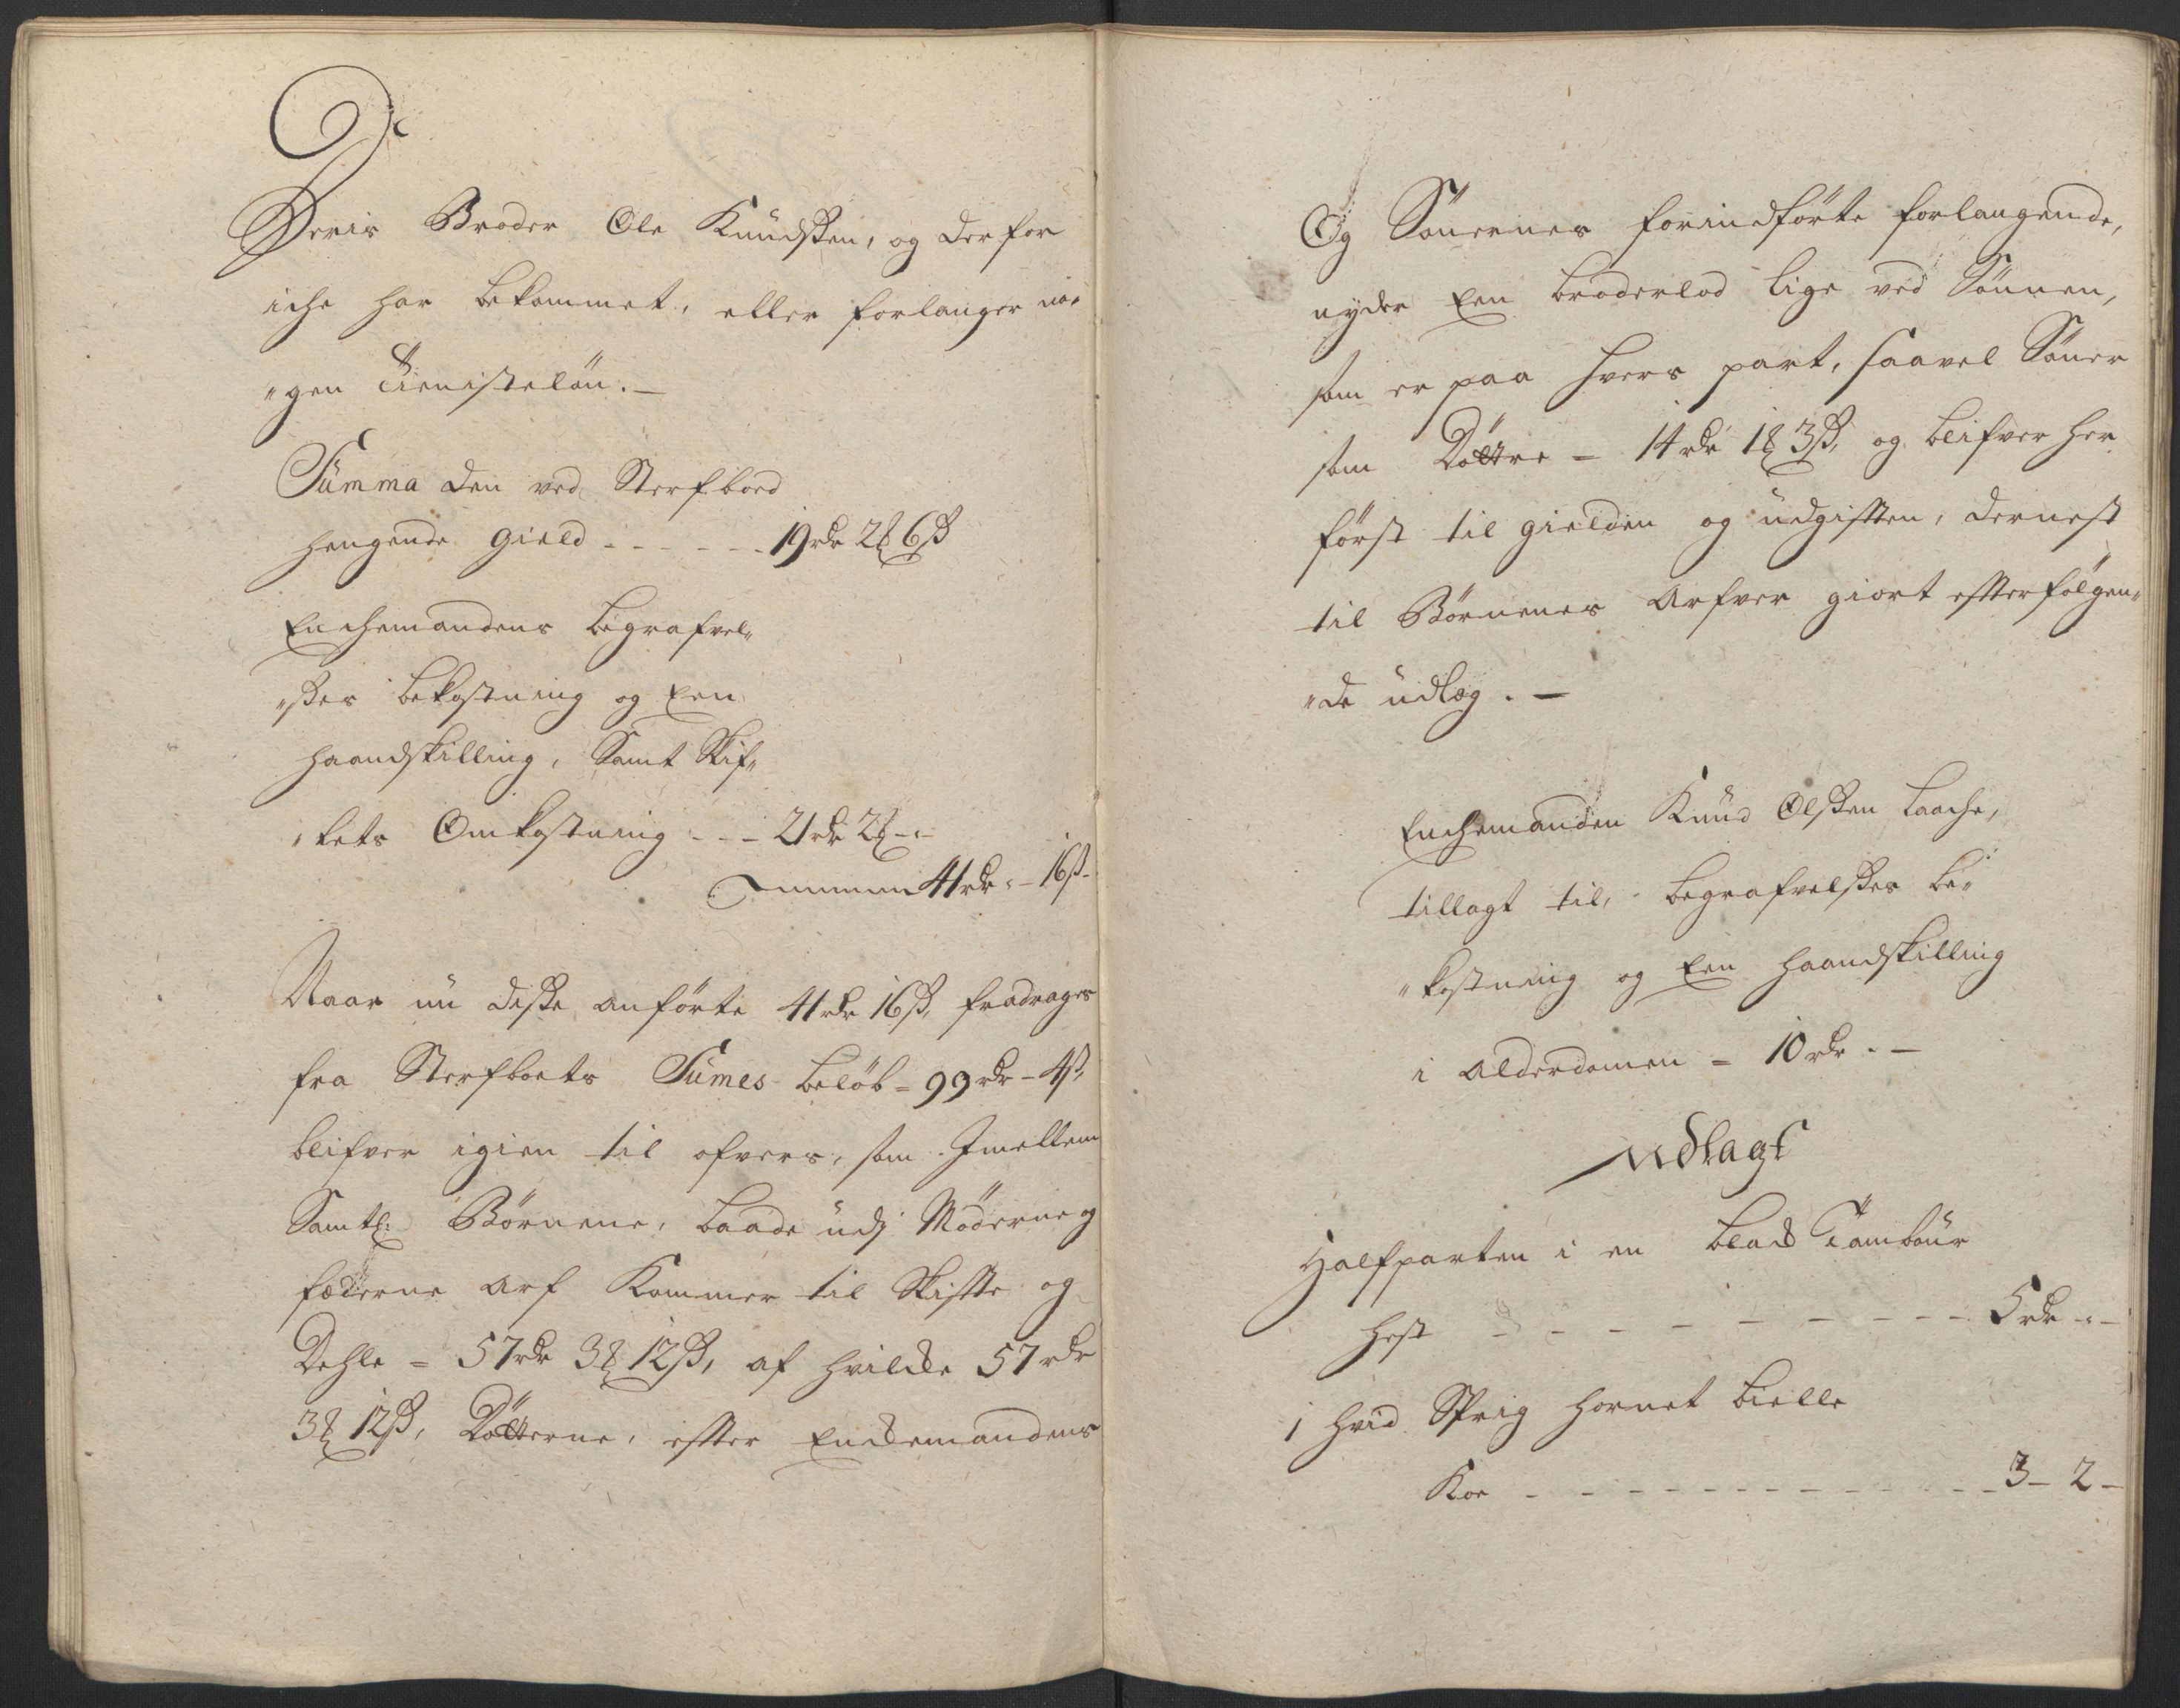 Deris Broder Ole Knudssen, og derfor
iche har bekommet, eller forlanger no„
„gen tienisteløn. –
Summa den ved Sterfboed
hengende gield - - - - - - 19 rdr 2 ß 6 ß
Enchemandens Begrafvel„
„sses bekostning og Een
haandskilling, Samt Skif„
„tets Omkostning - - - 21 rdr 2 -:-
Summa 41 rdr :- 16 ß -
Naar nu disse anførte 41 rdr 16 ß, fradrages
fra Sterfboets Sumes beløb = 99 rdr - 4 ß,
blifver igien til ofvers, som Imellem
Samtl: Børnene, baade udj Møderne og
fæderne arf Kommer til Skifte og
Dehle = 57 rdr 3 12 ß, af hvilcke 57 rdr
3 12 ß, Døttrerne, efter Enckemandens
Og Sønernes forindførte forlangende,
nyder Een broderlod lige ved Sønnen,
som er paa hvers part, saavel Søner
som Døttre = 14 rdr 1 3 ß, og blifver her
først til gielden og udgiften, dernest
til Børnenes Arfver giort efterfølgen„
„de udlæg. –
Enchemanden Knud Olssen Laache,
tillagt til, begrafvelsses be„
„kostning og Een haandskilling
i alderdomen = 10 rdr . –
Udlagt
Halfparten i en blach Tambour
hest - - - - - - - - - 5 rdr -:-
1 hvid Sprig hornet bielle
Koe - - - - - - - - - - - 3 - 2 -